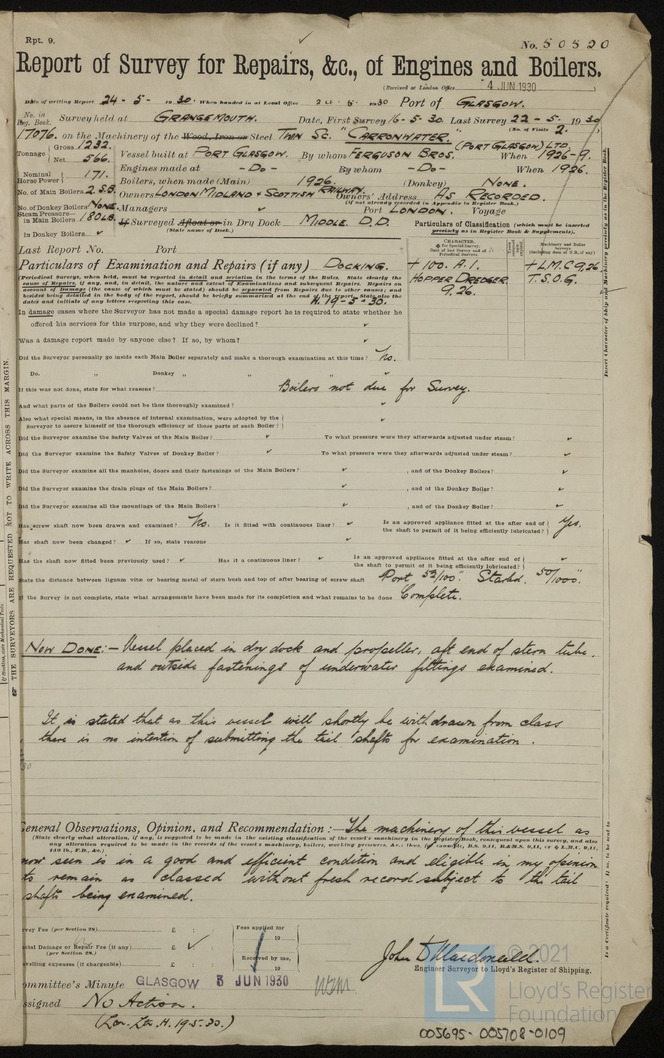 Rpt. 9.
No. 50520
Report of Survey for Repairs, &c., of Engines and Boilers.
(Received at London Office 4 JUN 1930)
Date of writing Report 24-5-1930. When handed in at Local Office 1930 Port of GLASGOW.
No. in Reg. Book. Survey held at GRANGEMOUTH. Date, First Survey 16-5-30. Last Survey 22-5-1930
(No. of Visits 2.)
17076. on the Machinery of the Wood, Iron or Steel TWIN SC. "CARRONWATER." (PORT GLASGOW) LTD.
Tonnage Gross 1232. Net 566.
Vessel built at PORT GLASGOW. By whom FERGUSON BROS. When 1926-9.
Engines made at -Do- By whom -Do- When 1926.
Nominal Horse Power 171.
Boilers, when made (Main) 1926. (Donkey) NONE.
No. of Main Boilers 2 S.B. Owners LONDON MIDLAND & SCOTTISH RAILWAY. Owners' Address AS RECORDED.
(If not already recorded in Appendix to Register Book.)
No. of Donkey Boilers NONE. Managers Port LONDON. Voyage
Steam Pressure in Main Boilers 180 LB. If Surveyed Afloat or in Dry Dock MIDDLE D.D.
(State name of Dock.)
in Donkey Boilers
Particulars of Classification (which must be inserted precisely as in Register Book & Supplements).
Last Report No. Port
Particulars of Examination and Repairs (if any) DOCKING.
+ 100. A.1. HOPPER DREDGER 9,26.
+ L.M.C 9,26 T.S.O.G.
H. 19-5-30.
In damage cases where the Surveyor has not made a special damage report he is required to state whether he
offered his services for this purpose, and why they were declined?
Was a damage report made by anyone else? If so, by whom?
Did the Surveyor personally go inside each Main Boiler separately and make a thorough examination at this time? No.
Do. " Donkey " " " "
If this was not done, state for what reasons? Boilers not due for Survey.
And what parts of the Boilers could not be thus thoroughly examined?
Also what special means, in the absence of internal examination, were adopted by the
Surveyor to assure himself of the thorough efficiency of those parts of each Boiler?
Did the Surveyor examine the Safety Valves of the Main Boiler? To what pressure were they afterwards adjusted under steam?
Did the Surveyor examine the Safety Valves of Donkey Boiler? To what pressure were they afterwards adjusted under steam?
Did the Surveyor examine all the manholes, doors and their fastenings of the Main Boilers? , and of the Donkey Boilers?
Did the Surveyor examine the drain plugs of the Main Boilers? , and of the Donkey Boilers?
Did the Surveyor examine all the mountings of the Main Boilers? , and of the Donkey Boilers?
Has screw shaft now been drawn and examined? No. Is it fitted with continuous liner? Is an approved appliance fitted at the after end of the shaft to permit of it being efficiently lubricated? Yes.
Has shaft now been changed? If so, state reasons
Has the shaft now fitted been previously used? Has it a continuous liner? Is an approved appliance fitted at the after end of the shaft to permit of it being efficiently lubricated?
State the distance between lignum vitæ or bearing metal of stern bush and top of after bearing of screw shaft Port Starbd.
If the Survey is not complete, state what arrangements have been made for its completion and what remains to be done Complete.
NOW DONE:- Vessel placed in dry dock and propeller, aft end of stern tube,
and outside fastenings of underwater fittings examined.
It is stated that as this vessel will shortly be withdrawn from class
there is no intention of submitting the tail shafts for examination.
General Observations, Opinion, and Recommendation:- The machinery of this vessel as
now seen is in a good and efficient condition and eligible in my opinion
to remain as classed without fresh record subject to the tail
shafts being examined.
Survey Fee (per Section 28) £ : :
Special Damage or Repair Fee (if any) £ : :
(per Section 28.)
Travelling expenses (if chargeable) £ : :
Fees applied for 19
Received by me, 19
John D Macdonald.
Engineer Surveyor to Lloyd's Register of Shipping.
Committee's Minute GLASGOW 3 JUN 1930
Assigned No Action.
(Lon. Ltr. H. 19.5.30.)
THE SURVEYORS ARE REQUESTED NOT TO WRITE ACROSS THIS MARGIN.
© 2021
LR
Lloyd's Register
Foundation
005695-005708-0109